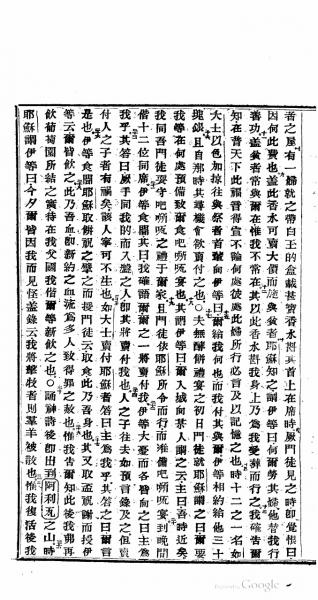 者之屋有一婦就之帶白玉的盒載甚貴香水其首上在席時厥門徒見之時卽覺恨曰
因何此費也蓋此香水可賣大價而施與貧者耶穌知之謂伊等曰何爾勞其婦他替我行
善功蓋貧者常與爾在惟我不常在其以此香水斟我身上乃爲我受葬而行之我確告爾
知在普天下此福音得宣不論何處彼處此婦所行必言及以記憶之也時十二之一名如
大士以色加掉往與祭者首輩向伊等曰爾給我何也而我付其與爾伊等相約給他三十
塊銀且自那時其尋機會欲賣付之也○夫無酵餅禮宴之初日門徒就耶穌謂之曰爾要
我等在何處預備致爾食吧唎㖔宴也其謂伊等曰爾入城向某人謂之云主曰吾時近矣
我同吾門徒要守吧唎㖔之禮于爾家且門徒依耶穌所令而行而準備吧唎㖔宴到晚間
偕十二位同席伊等食間其曰我確語爾爾之一將賣付我伊等大憂而各皆向之曰主爲
我乎其答曰厥手同我的而入盤之人卽其將賣付我也人之子往去如預言錄及之但賣
付人之子者有禍矣該人寧可不生也如大士賣付耶穌者答曰主爲我乎其答之曰爾言
是也伊等食間耶穌取餅祝之擘之而授門徒云取食此乃吾身也其又取盃祝謝而授伊
等云爾皆飲之此乃吾血卽新約之血流爲多人致得罪之赦也惟我告爾知此後我弗再
飲葡萄園所結之實待在我父國我偕爾等新飲之也○誦神詩後卽出到阿利瓦之山時
耶穌謂伊等曰今夕爾皆因我而見怪蓋錄云我將擊牧者則羣羊被散也惟我復活後我
Google